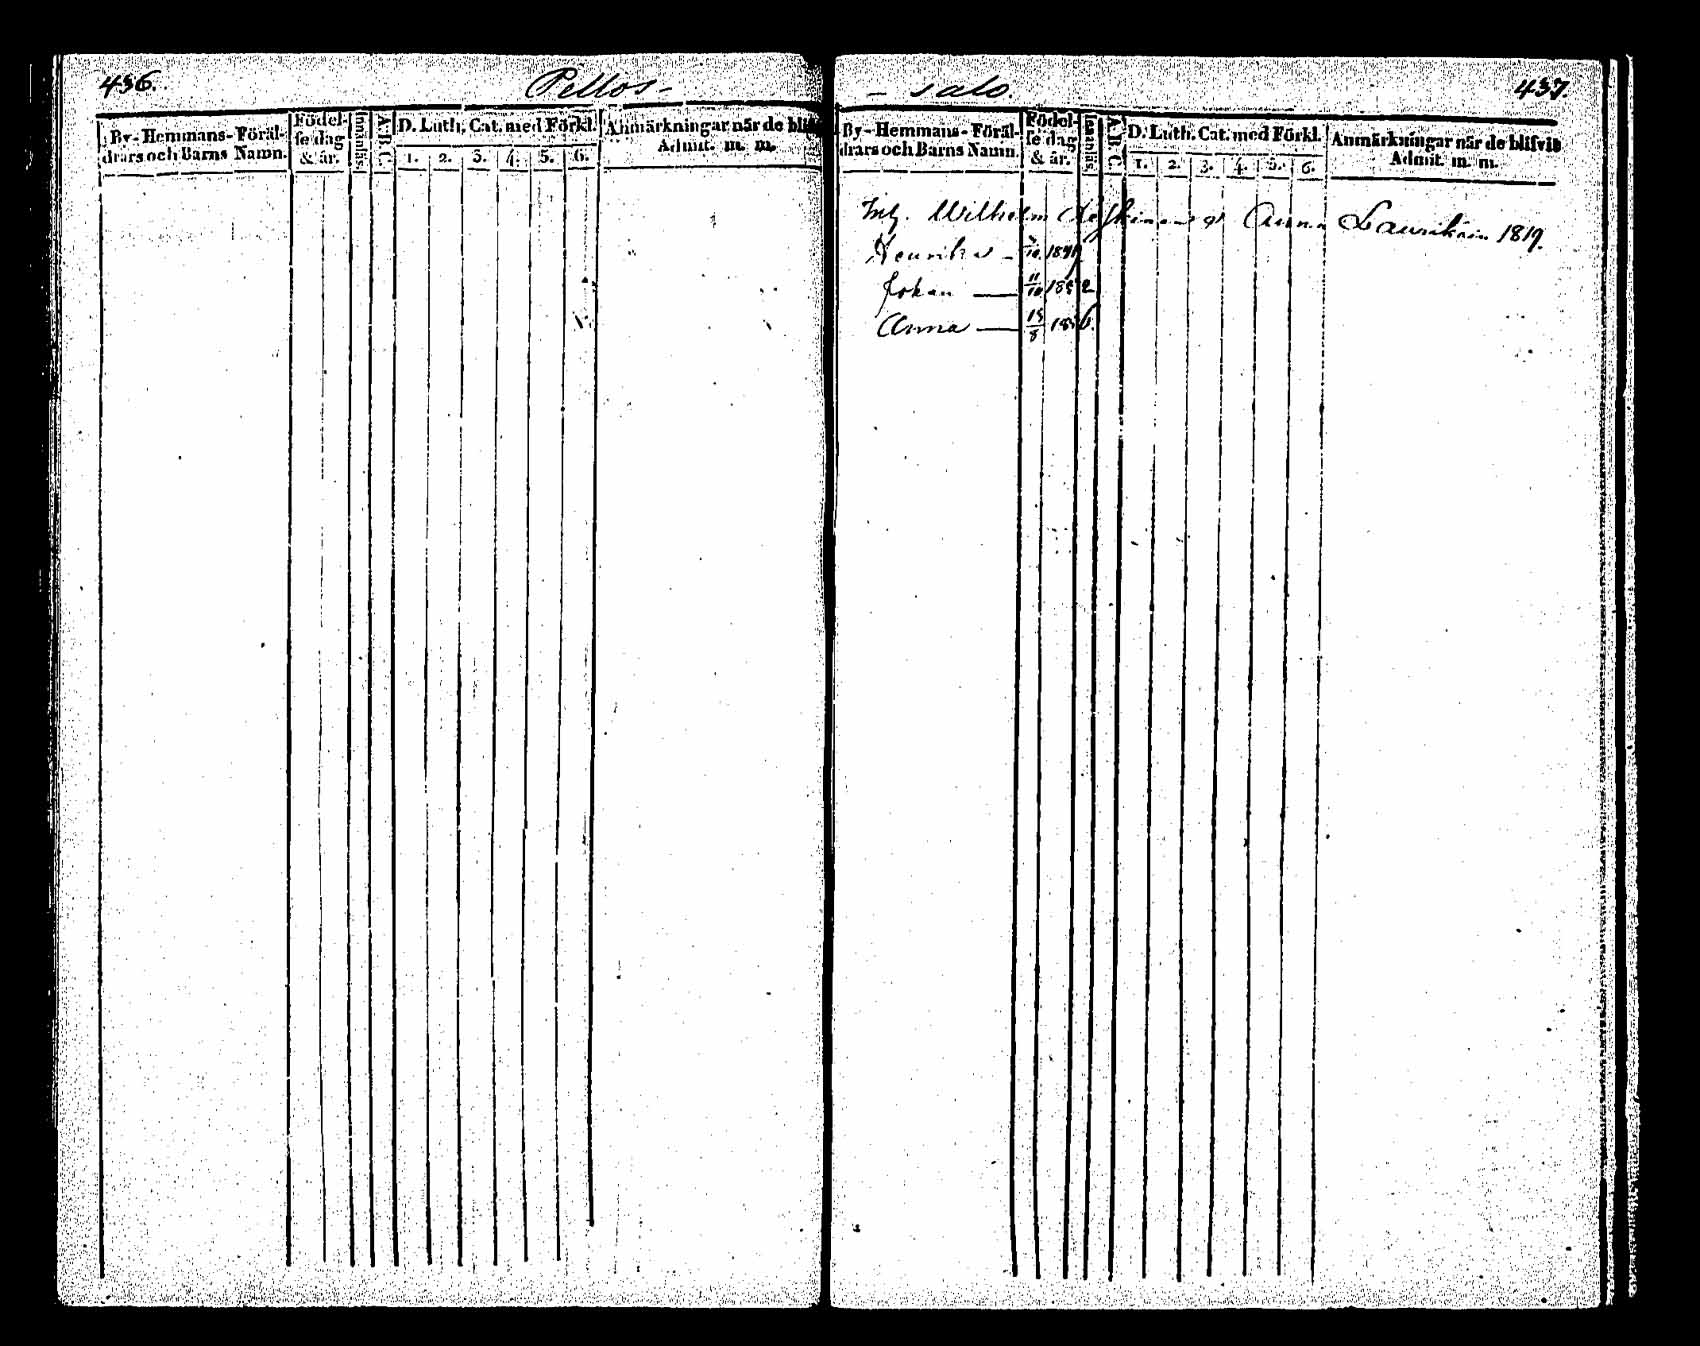 436.
Pellos-
By- Hemmans- Föräl-
drars och Barns Namn.
Födel-
se dag
& år.
Innanläs
A.B.C.
D. Luth. Cat. med Förkl.
1. 2. 3. 4. 5. 6.
Anmärkningar när de blif
Admit. m. m.
- salo.
437.
By- Hemmans- Föräl-
drars och Barns Namn.
Födel-
se dag
& år.
Innanläs
A.B.C.
D. Luth. Cat. med Förkl.
1. 2. 3. 4. 5. 6.
Anmärkningar när de blifvit
Admit. m. m.
Wilhelm Anna Laurikain 1819.
Henrika -
Johan — 11/10 1852
Anna — 15/8 1856.